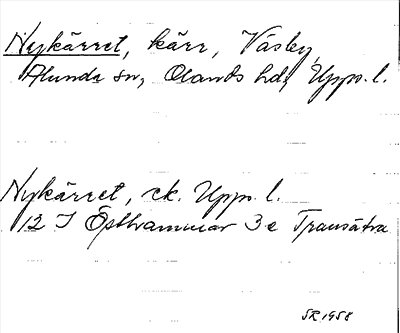 Nykärret, kärr, Väsby,
Alunda sn, Olands hd, Upps. l.
Nykärret, ek. Upps. l.
12 I Östhammar 3e Transätra
SR 1958